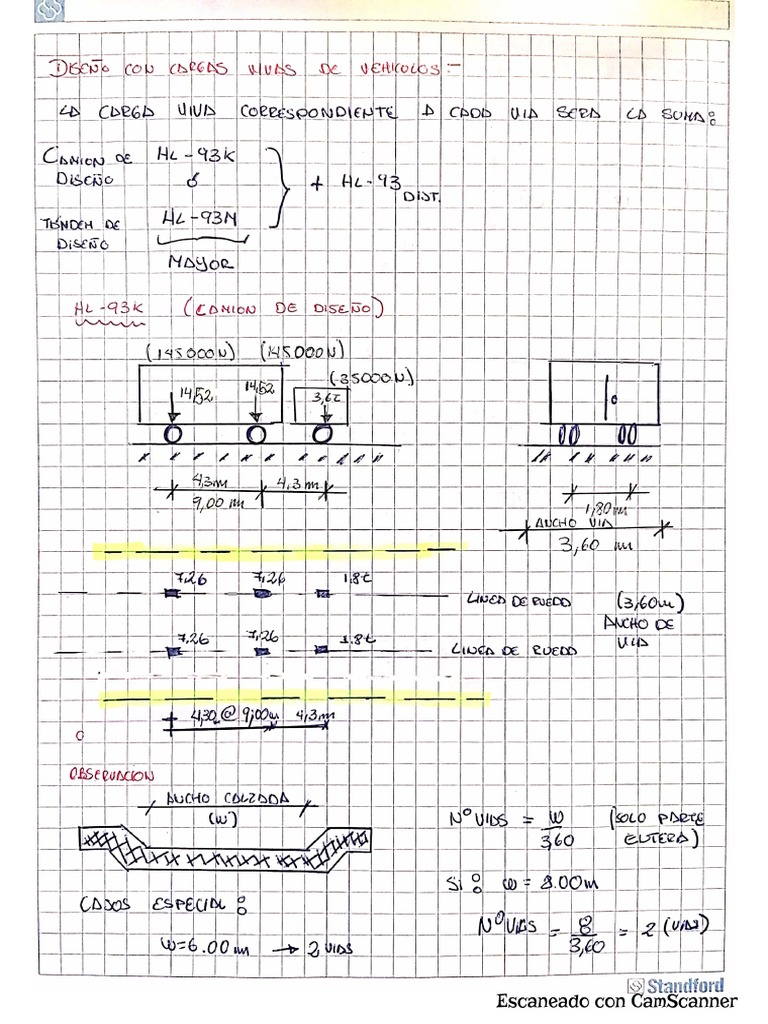 DISEÑO CON CARGAS VIVAS DE VEHICULOS:-
LA CARGA VIVA CORRESPONDIENTE A CADA VIA SERA LA SUMA:
CAMION DE DISEÑO HL-93K
ó + HL-93 DIST.
TANDEM DE DISEÑO HL-93M
MAYOR
HL-93K (CAMION DE DISEÑO)
(145000N) (145000N)
(35000N)
14,52 14,52 3,6t
4,3m 4,3m
9,00 m
1,80m
ANCHO VIA
3,60 m
7,26 7,26 1.8t
LINEA DE RUEDA (3,60m)
ANCHO DE VIA
7,26 7,26 1.8t
LINEA DE RUEDA
4,30 @ 9,00m 4,3m
OBSERVACION
ANCHO CALZADA
(w)
Nº VIAS = w/3,60 (SOLO PARTE ENTERA)
Si: w = 8.00m
CASOS ESPECIAL:
Nº VIAS = 8/3,60 = 2 (VIAS)
w=6.00 m → 2 VIAS
Standford
Escaneado con CamScanner